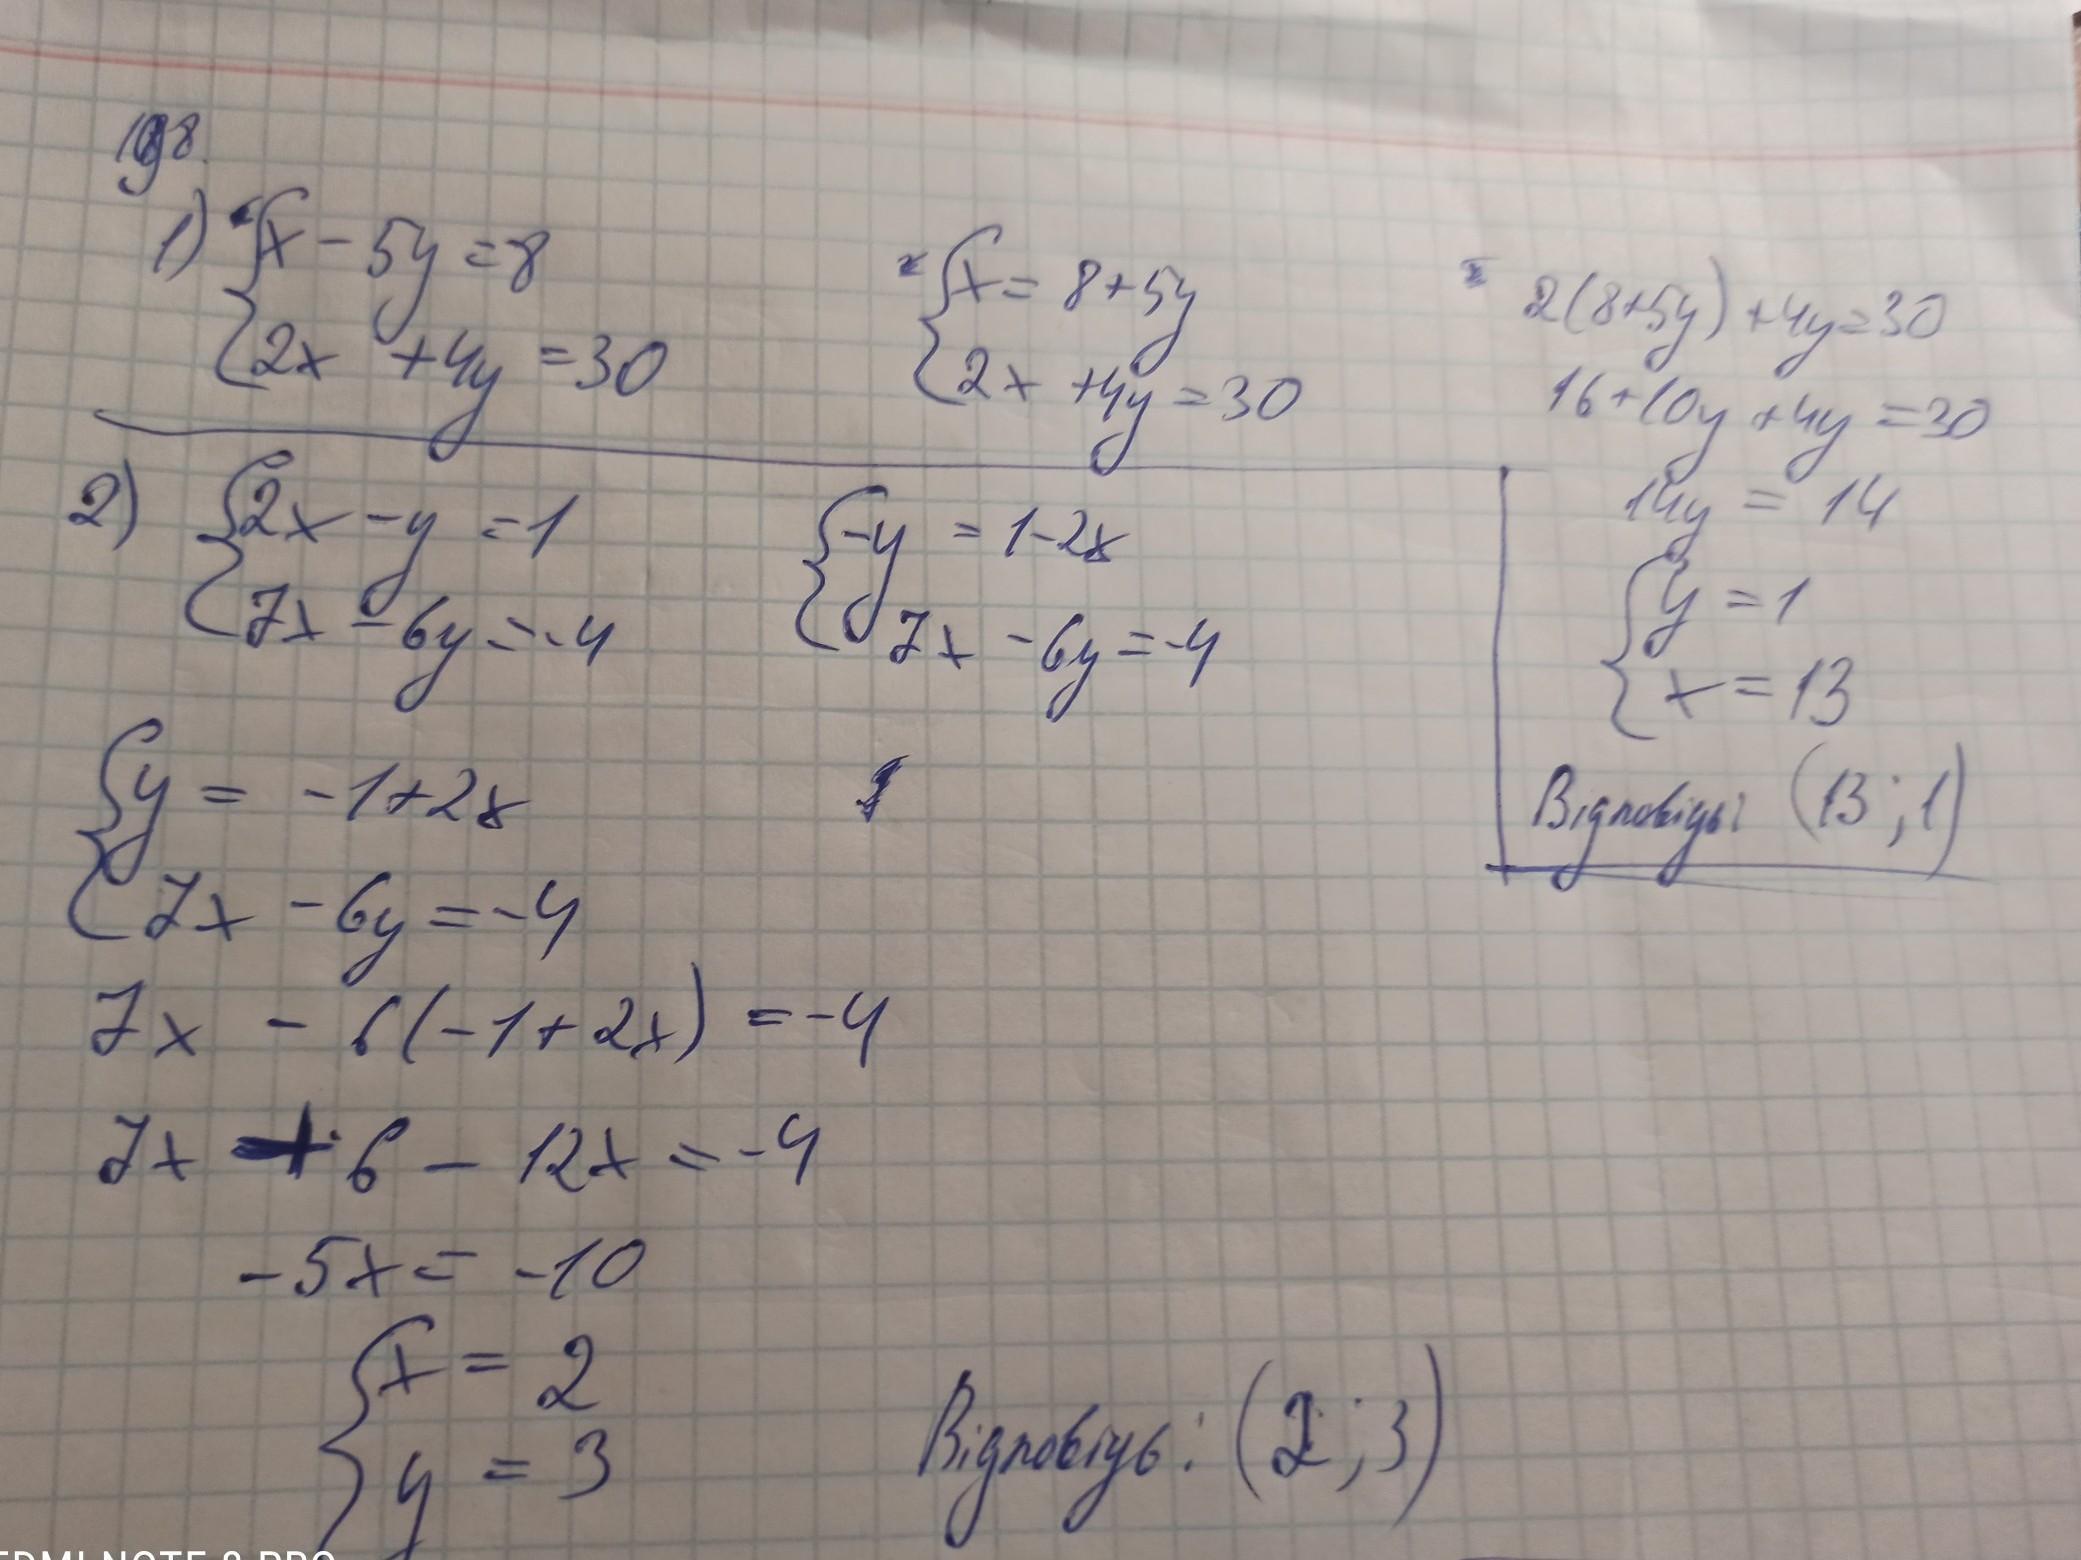 1098.
1) { x - 5y = 8
{ 2x + 4y = 30
{ x = 8 + 5y
{ 2x + 4y = 30
2(8+5y) + 4y = 30
16 + 10y + 4y = 30
14y = 14
{ y = 1
{ x = 13
Відповідь: (13; 1)
2) { 2x - y = 1
{ 7x - 6y = -4
{ -y = 1 - 2x
{ 7x - 6y = -4
{ y = -1 + 2x
{ 7x - 6y = -4
7x - 6(-1 + 2x) = -4
7x + 6 - 12x = -4
-5x = -10
{ x = 2
{ y = 3
Відповідь: (2; 3)
REDMI NOTE 8 PRO